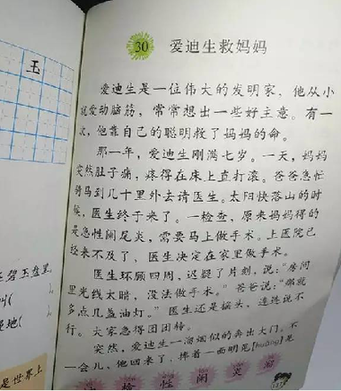 30 爱迪生救妈妈
玉
爱迪生是一位伟大的发明家、他从小
就爱动脑筋，常常想出一些好主意。有一
次，他靠自己的聪明救了妈妈的命。
那一年，爱迪生刚满七岁。一天，妈妈
突然肚子痛，疼得在床上直打滚。爸爸急忙
骑马到几十里外去请医生。太阳快落山的时
候，医生终于来了。一检查，原来妈妈得的
是急性阑尾炎，需要马上做手术。上医院已
经来不及了，医生决定在家里做手术。
医生环顾四周，迟疑了片刻，说：“房间
里光线太暗，没法做手术。”爸爸说：“那就
多点几盏油灯。”医生还是摇头，连连说不
行。大家急得团团转。
突然，爱迪生一溜烟似的奔出大门。不
一会儿，他回来了，捧着一面明晃(huǎng)晃
玉盘里
叫(
)。
地(
)。
是世界上
性 阑